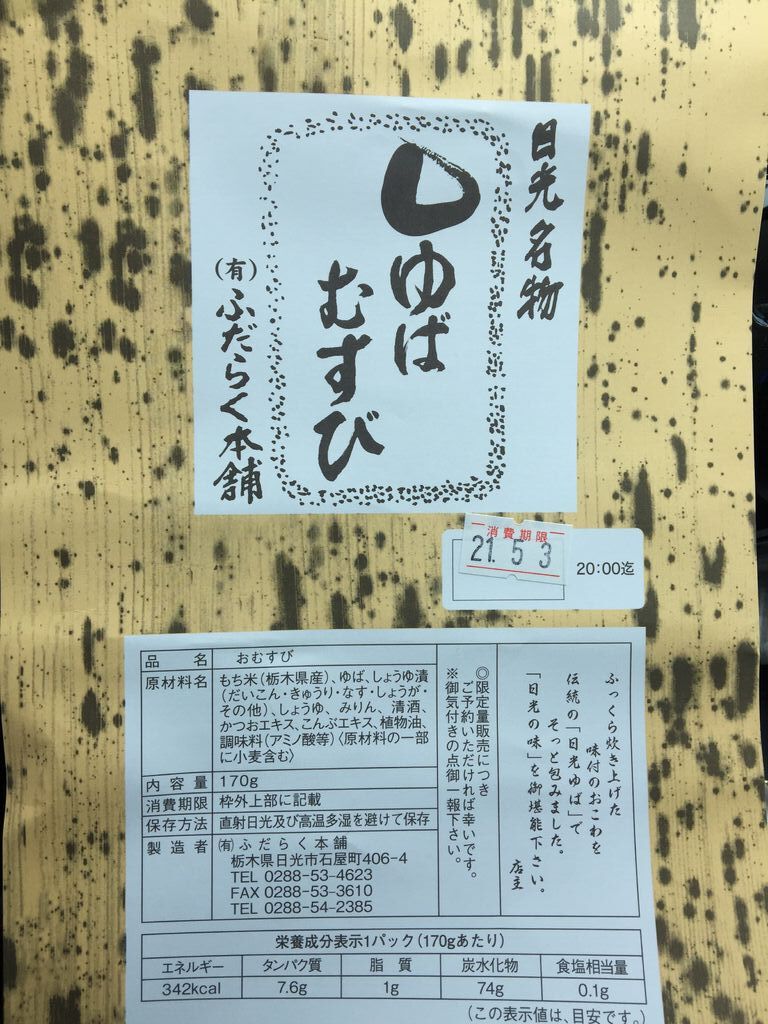 日光名物
ゆば
むすび
(有)ふだらく本舗
消費期限
21. 5 3
20:00迄
品名 おむすび
原材料名 もち米(栃木県産)、ゆば、しょうゆ漬
(だいこん・きゅうり・なす・しょうが・
その他)、しょうゆ、みりん、清酒、
かつおエキス、こんぶエキス、植物油、
調味料(アミノ酸等)〈原材料の一部
に小麦含む〉
内容量 170g
消費期限 枠外上部に記載
保存方法 直射日光及び高温多湿を避けて保存
製造者 ㈲ふだらく本舗
栃木県日光市石屋町406-4
TEL 0288-53-4623
FAX 0288-53-3610
TEL 0288-54-2385
◎限定量販売につき
ご予約いただければ幸いです。
※御気付きの点御一報下さい。
ふっくら炊き上げた
味付のおこわを
伝統の「日光ゆば」で
そっと包みました。
「日光の味」を御堪能下さい。
店主
栄養成分表示1パック(170gあたり)
エネルギー タンパク質 脂質 炭水化物 食塩相当量
342kcal 7.6g 1g 74g 0.1g
(この表示値は、目安です。)